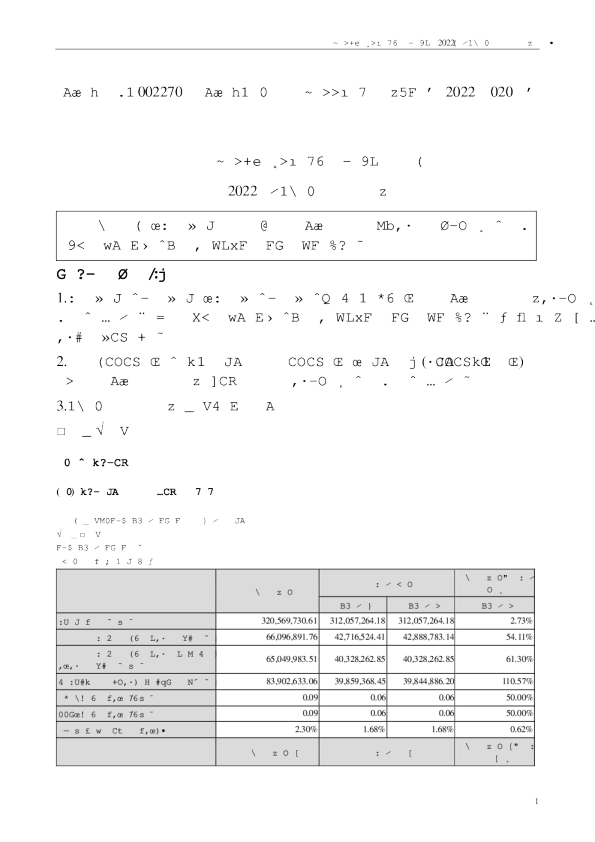 ~ >+e ¸>ı 76 − 9L 2022 ⁄1\ 0 z •
Aæ h .1 002270 Aæ h1 0 ~ >>ı 7 z5F ′ 2022 020 ′
~ >+e ¸>ı 76 − 9L (
2022 ⁄1\ 0 z
\ ( œ: » J @ Aæ Mb,· Ø-O ¸ ˆ .
9< wA E› ˆB , WLxF FG WF %? ˜
G ?− Ø /:j
1.: » J ˆ− » J œ: » ˆ− » ˆQ 4 1 *6 Œ Aæ z,·−O ¸
. ˆ … ⁄ ¨ = X< wA E› ˆB , WLxF FG WF %? ¨ ƒ fl ı Z [ …
,·# »CS + ˜
2. (COCS Œ ˆ k1 JA COCS Œ œ JA j (· Œ)
> Aæ z ]CR ,·−O ¸ ˆ . ˆ … ⁄ ˜
3.1\ 0 z _ V4 E A
□ _√ V
0 ˆ k?−CR
( 0) k?− JA …CR 7 7
( _ VM0F−$ B3 ⁄ FG F } ⁄ JA
√ _□ V
F−$ B3 ⁄ FG F ˜
< 0 f ; 1 J 8 ƒ
\ z O : ⁄ < O \ z O" : ⁄
O ¸
B3 ⁄ } B3 ⁄ > B3 ⁄ >
:U J f ˜ s ˜ 320,569,730.61 312,057,264.18 312,057,264.18 2.73%
: 2 (6 L,· Y# ˜ 66,096,891.76 42,716,524.41 42,888,783.14 54.11%
: 2 (6 L,· L M 4
,œ,· Y# ˜ s ˜ 65,049,983.51 40,328,262.85 40,328,262.85 61.30%
4 :U#k +O,·) H #qG N˝ ˜ 83,902,633.06 39,859,368.45 39,844,886.20 110.57%
* \! 6 f,œ 76s ˜ 0.09 0.06 0.06 50.00%
00Gœ! 6 f,œ 76s ˜ 0.09 0.06 0.06 50.00%
− s £ w Ct f,œ)• 2.30% 1.68% 1.68% 0.62%
\ z O [ : ⁄ [ \ z O [" :
[ ¸
1